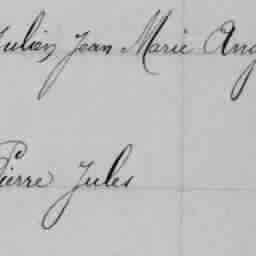 Julien Jean Marie Ang
Pierre Jules